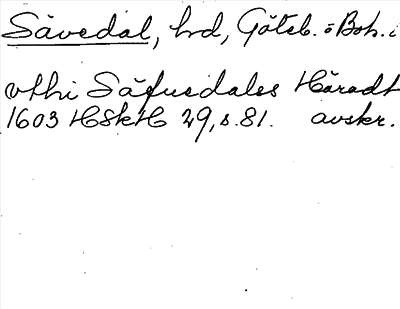 Sävedal, hd, Göteb. o Boh. l
vthi Säfuedales Häradt
1603 HSkH 29, s. 81. avskr.